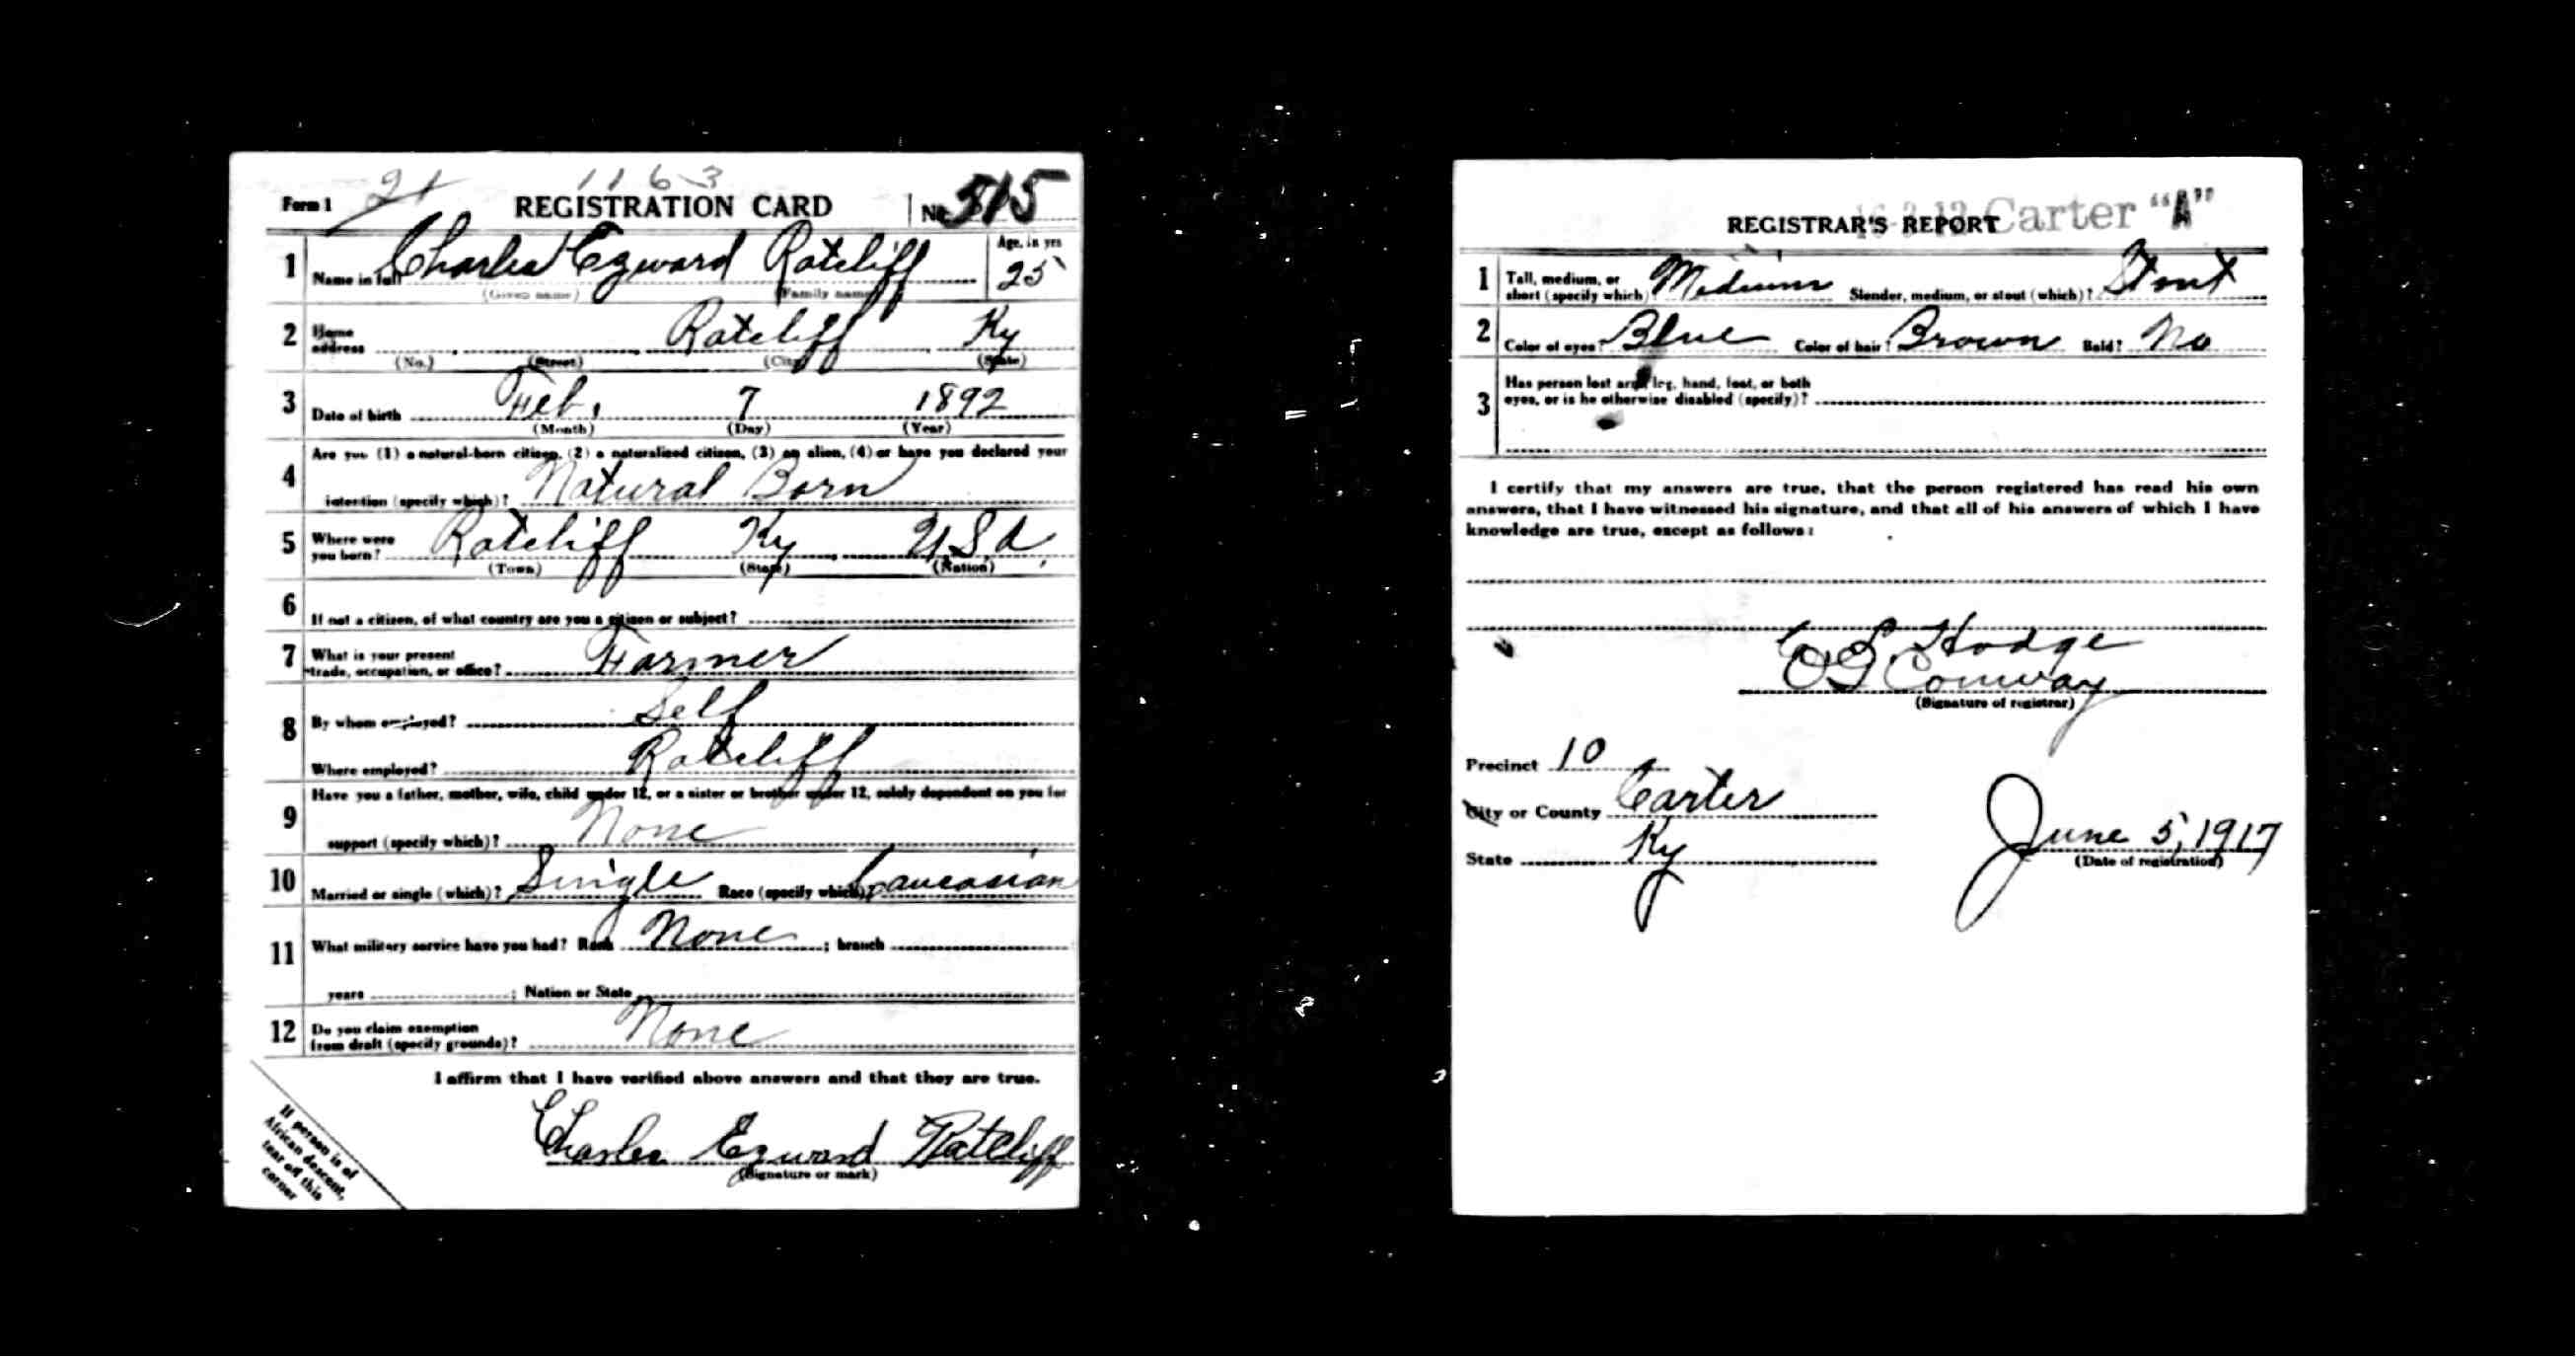 1163
Form 1 21 REGISTRATION CARD No. 515
1 Name in full Charles Ezward Ratcliff Age, in yrs 25
(Given name) (Family name)
2 Home address Ratcliff Ky
(No.) (Street) (City) (State)
3 Date of birth Feb. 7 1892
(Month) (Day) (Year)
4 Are you (1) a natural-born citizen, (2) a naturalized citizen, (3) an alien, (4) or have you declared your
intention (specify which)? Natural Born
5 Where were you born? Ratcliff Ky U.S.A.
(Town) (State) (Nation)
6 If not a citizen, of what country are you a citizen or subject?
7 What is your present
trade, occupation, or office? Farmer
8 By whom employed? Self
Where employed? Ratcliff
9 Have you a father, mother, wife, child under 12, or a sister or brother under 12, solely dependent on you for
support (specify which)? None
10 Married or single (which)? Single Race (specify which)? Caucasian
11 What military service have you had? Rank None ; branch
years ; Nation or State
12 Do you claim exemption
from draft (specify grounds)? None
I affirm that I have verified above answers and that they are true.
Charles Ezward Ratcliff
(Signature or mark)
If person is of
African descent,
tear off this
corner
REGISTRAR'S REPORT Carter "A"
1 Tall, medium, or
short (specify which)? Medium Slender, medium, or stout (which)? Stout
2 Color of eyes? Blue Color of hair? Brown Bald? No
3 Has person lost arm, leg, hand, foot, or both
eyes, or is he otherwise disabled (specify)?
I certify that my answers are true, that the person registered has read his own
answers, that I have witnessed his signature, and that all of his answers of which I have
knowledge are true, except as follows:
Hodge
Conway
(Signature of registrar)
Precinct 10
City or County Carter
State Ky
June 5, 1917
(Date of registration)